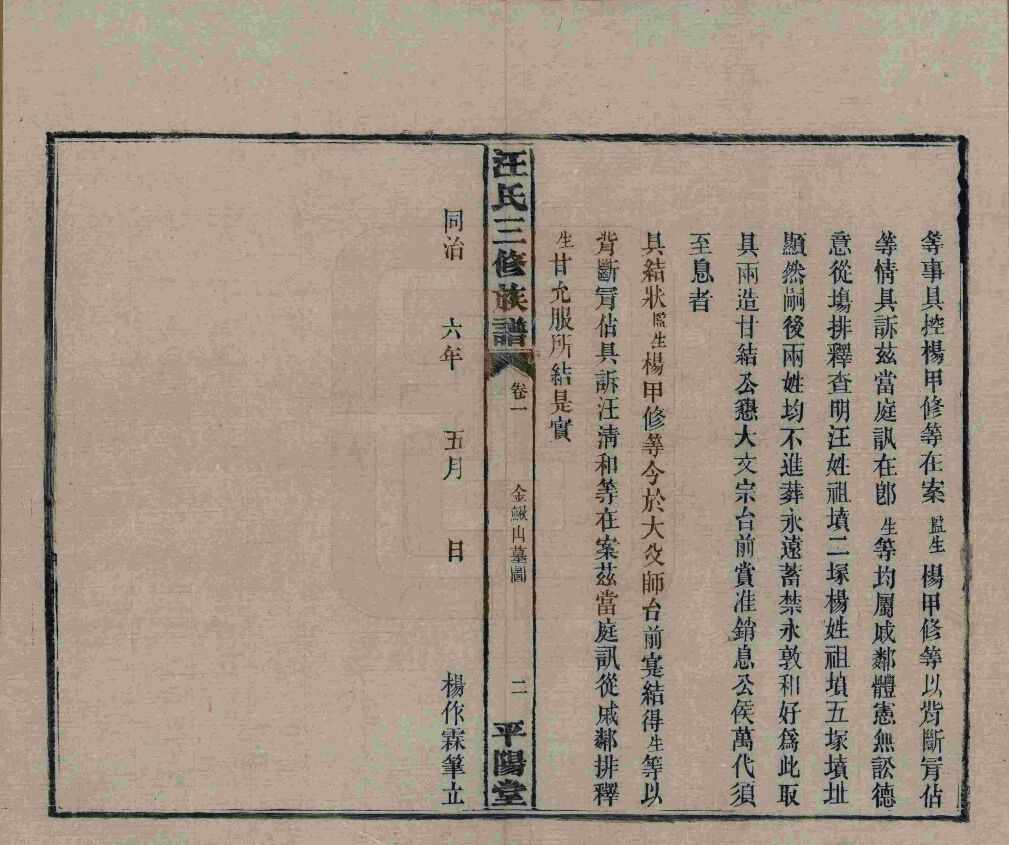 等事具控楊甲修等在案監生楊甲修等以背斷冐佔
等情具訴茲當庭訊在卽生等均屬戚鄰體憲無訟德
意從塲排釋查明汪姓祖墳二塚楊姓祖墳五塚墳址
顯然嗣後兩姓均不進葬永遠蓄禁永敦和好爲此取
具兩造甘結公懇大文宗台前賞准銷息公侯萬代須
至息者
具結狀監生楊甲修等今於大父師台前寔結得生等以
背斷冐佔具訴汪淸和等在案茲當庭訊從戚鄰排釋
生甘允服所結是實
汪氏三修族譜 卷一 金鰍山墓圖 二 平陽堂
同治 六年 五月 日 楊作霖筆立